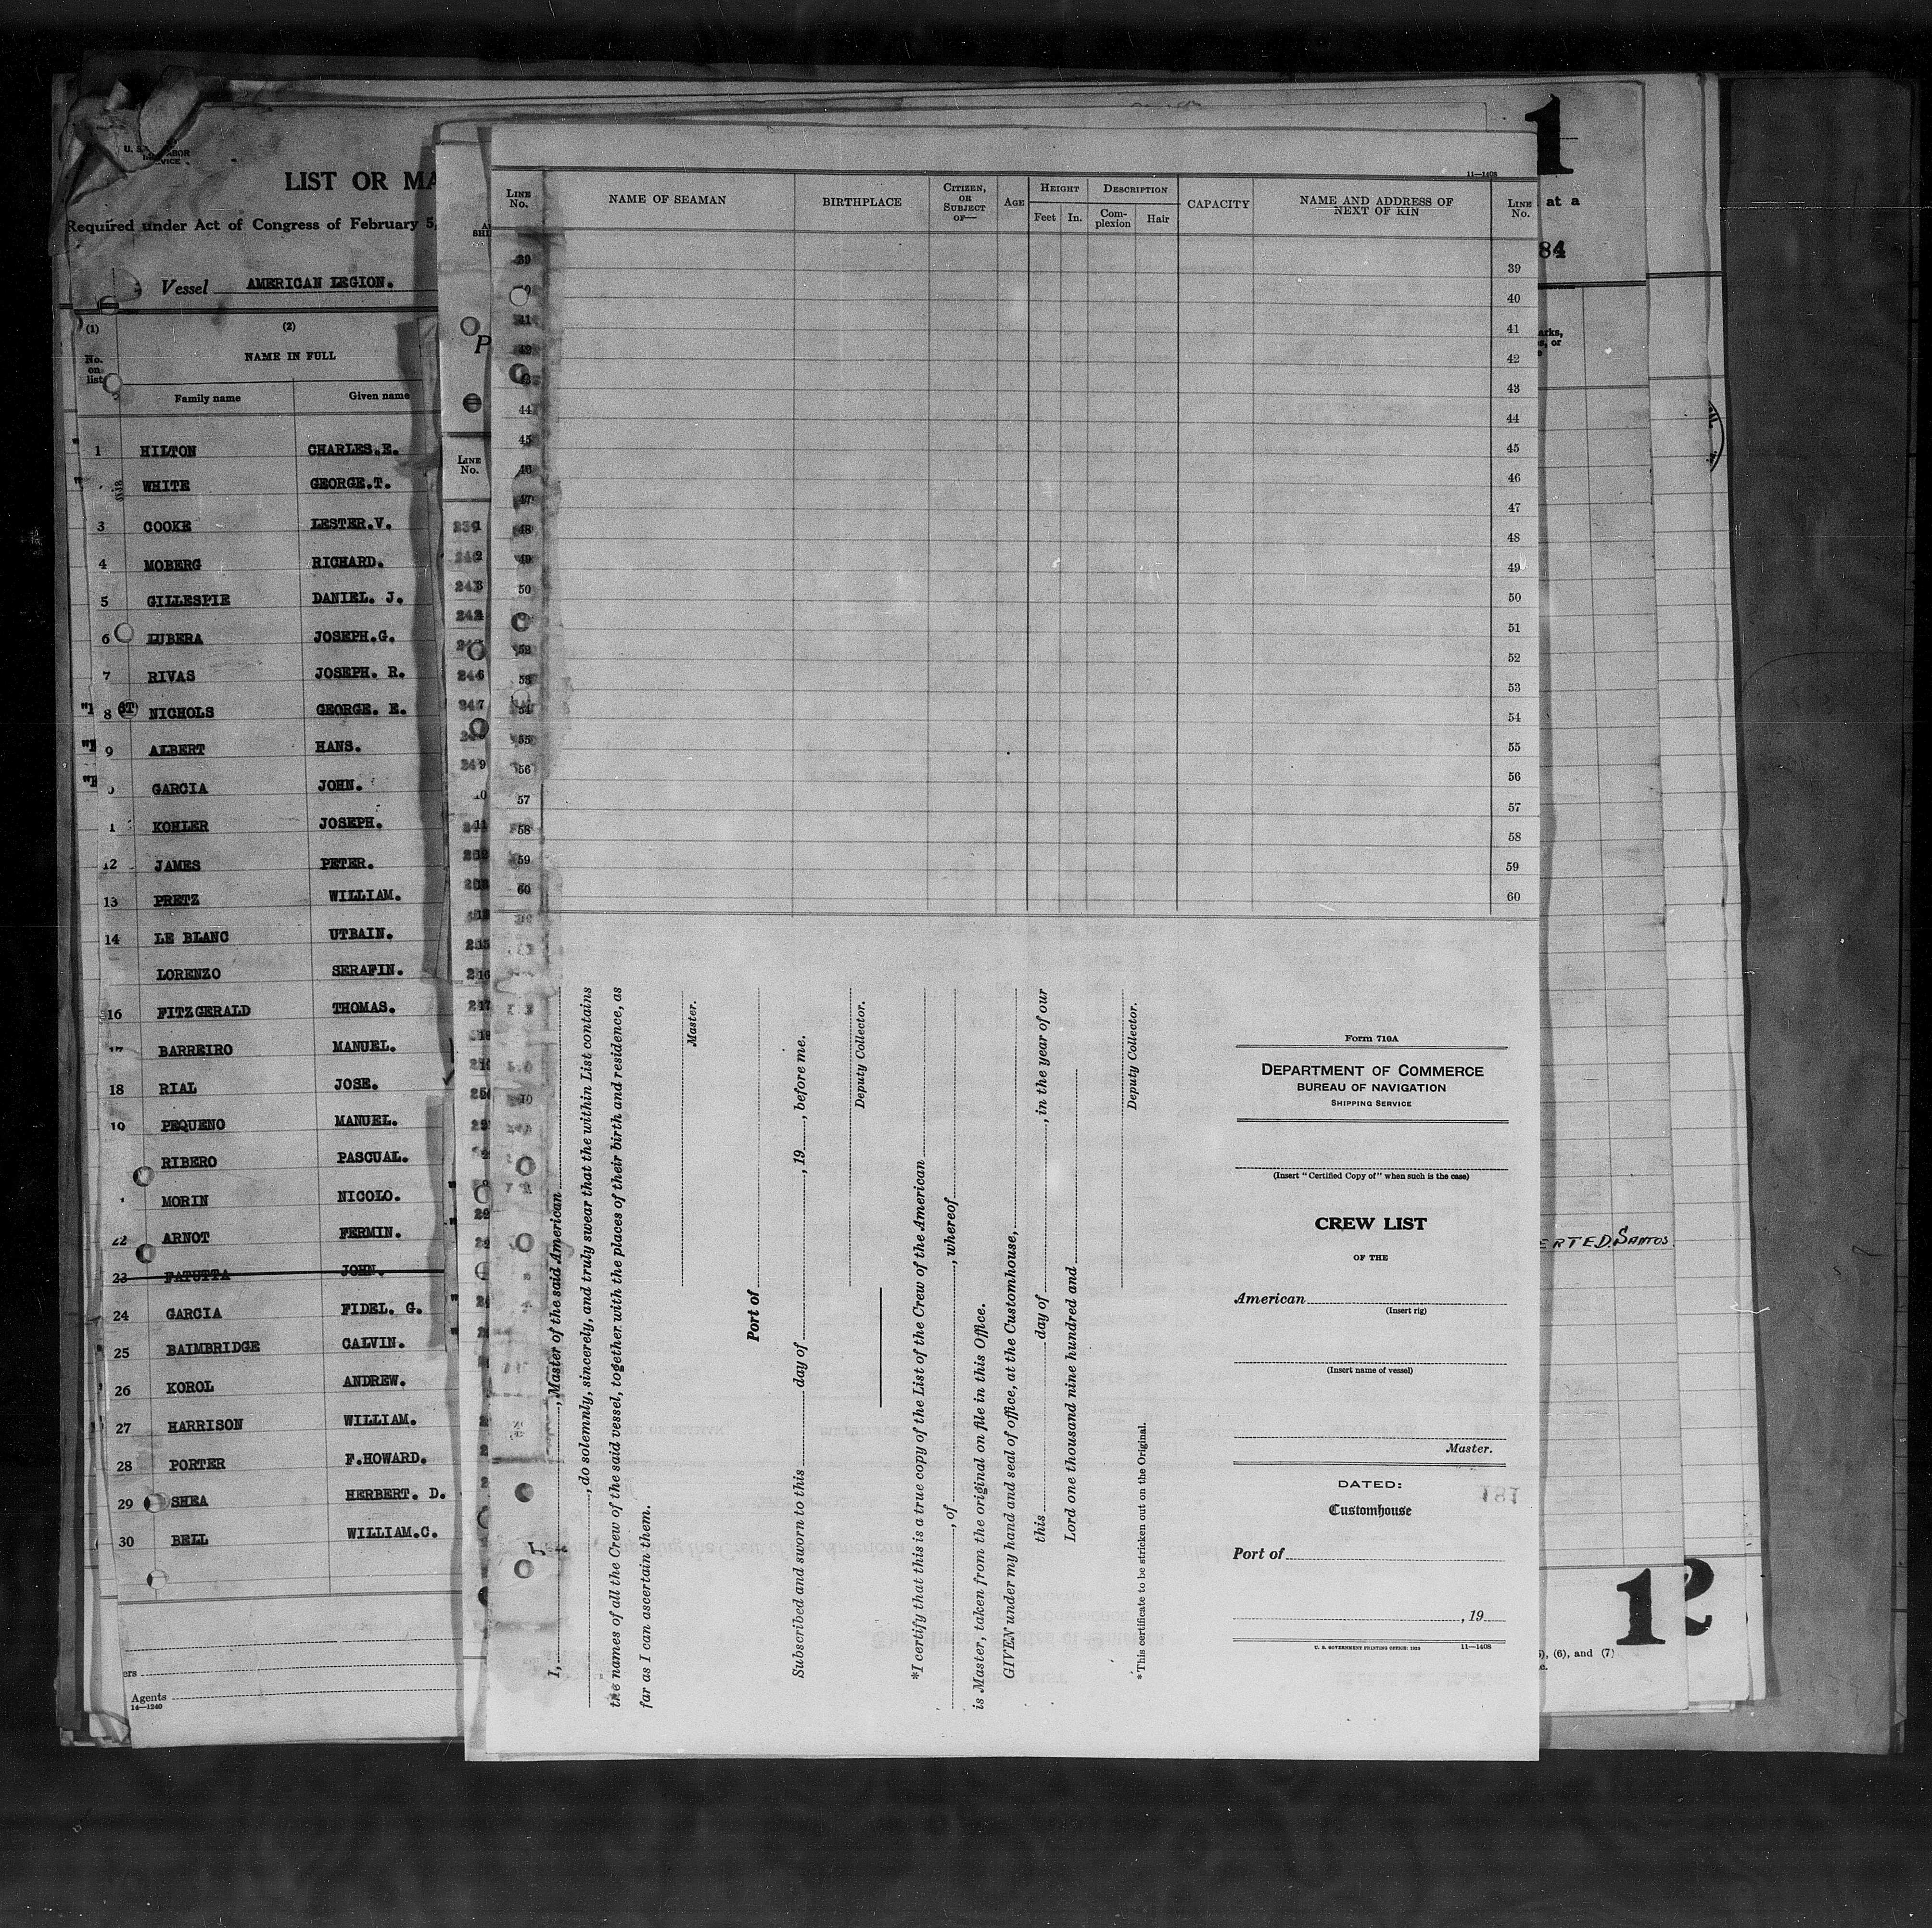 LIST OR
Required under Act of Congress of February 5,
Vessel AMERICAN LEGION.
(1) (2)
No. on list
NAME IN FULL
Family name Given name
1 HILTON CHARLES.E.
WHITE GEORGE.T.
3 COOKE LESTER.V.
4 MOBERG RICHARD.
5 GILLESPIE DANIEL. J.
6 LUBERA JOSEPH.G.
7 RIVAS JOSEPH. R.
8 ST NICHOLS GEORGE. E.
9 ALBERT HANS.
GARCIA JOHN.
1 KOHLER JOSEPH.
12 JAMES PETER.
13 PRETZ WILLIAM.
14 LE BLANC UTBAIN.
LORENZO SERAFIN.
16 FITZGERALD THOMAS.
17 BARREIRO MANUEL.
18 RIAL JOSE.
19 PEQUENO MANUEL.
RIBERO PASCUAL.
MORIN NICOLO.
22 ARNOT FERMIN.
23 FATUTTA JOHN.
24 GARCIA FIDEL. G.
25 BAIMBRIDGE CALVIN.
26 KOROL ANDREW.
27 HARRISON WILLIAM.
28 PORTER F.HOWARD.
29 SHEA HERBERT. D.
30 BELL WILLIAM.C.
Agents
14—1240
LINE No.
11—1408
LINE No. NAME OF SEAMAN BIRTHPLACE CITIZEN, OR SUBJECT OF— AGE HEIGHT DESCRIPTION CAPACITY NAME AND ADDRESS OF NEXT OF KIN LINE No.
Feet In. Complexion Hair
39 39
40
41 41
42 42
43 43
44 44
45 45
46 46
47 47
48 48
49 49
50 50
51
52 52
53 53
54 54
55 55
56 56
57 57
58 58
59 59
60 60
I, , Master of the said American
, do solemnly, sincerely, and truly swear that the within List contains
the names of all the Crew of the said vessel, together with the places of their birth and residence, as
far as I can ascertain them.
Master.
Port of
Subscribed and sworn to this day of , 19 , before me.
Deputy Collector.
*I certify that this is a true copy of the List of the Crew of the American
, of , whereof
is Master, taken from the original on file in this Office.
GIVEN under my hand and seal of office, at the Customhouse,
this day of , in the year of our
Lord one thousand nine hundred and
Deputy Collector.
*This certificate to be stricken out on the Original.
Form 710A
DEPARTMENT OF COMMERCE
BUREAU OF NAVIGATION
SHIPPING SERVICE
(Insert "Certified Copy of" when such is the case)
CREW LIST
OF THE
American
(Insert rig)
(Insert name of vessel)
Master.
DATED:
Customhouse
Port of
, 19
U. S. GOVERNMENT PRINTING OFFICE: 11—1408
1
at a
84
SANTOS.
12
(6), and (7)